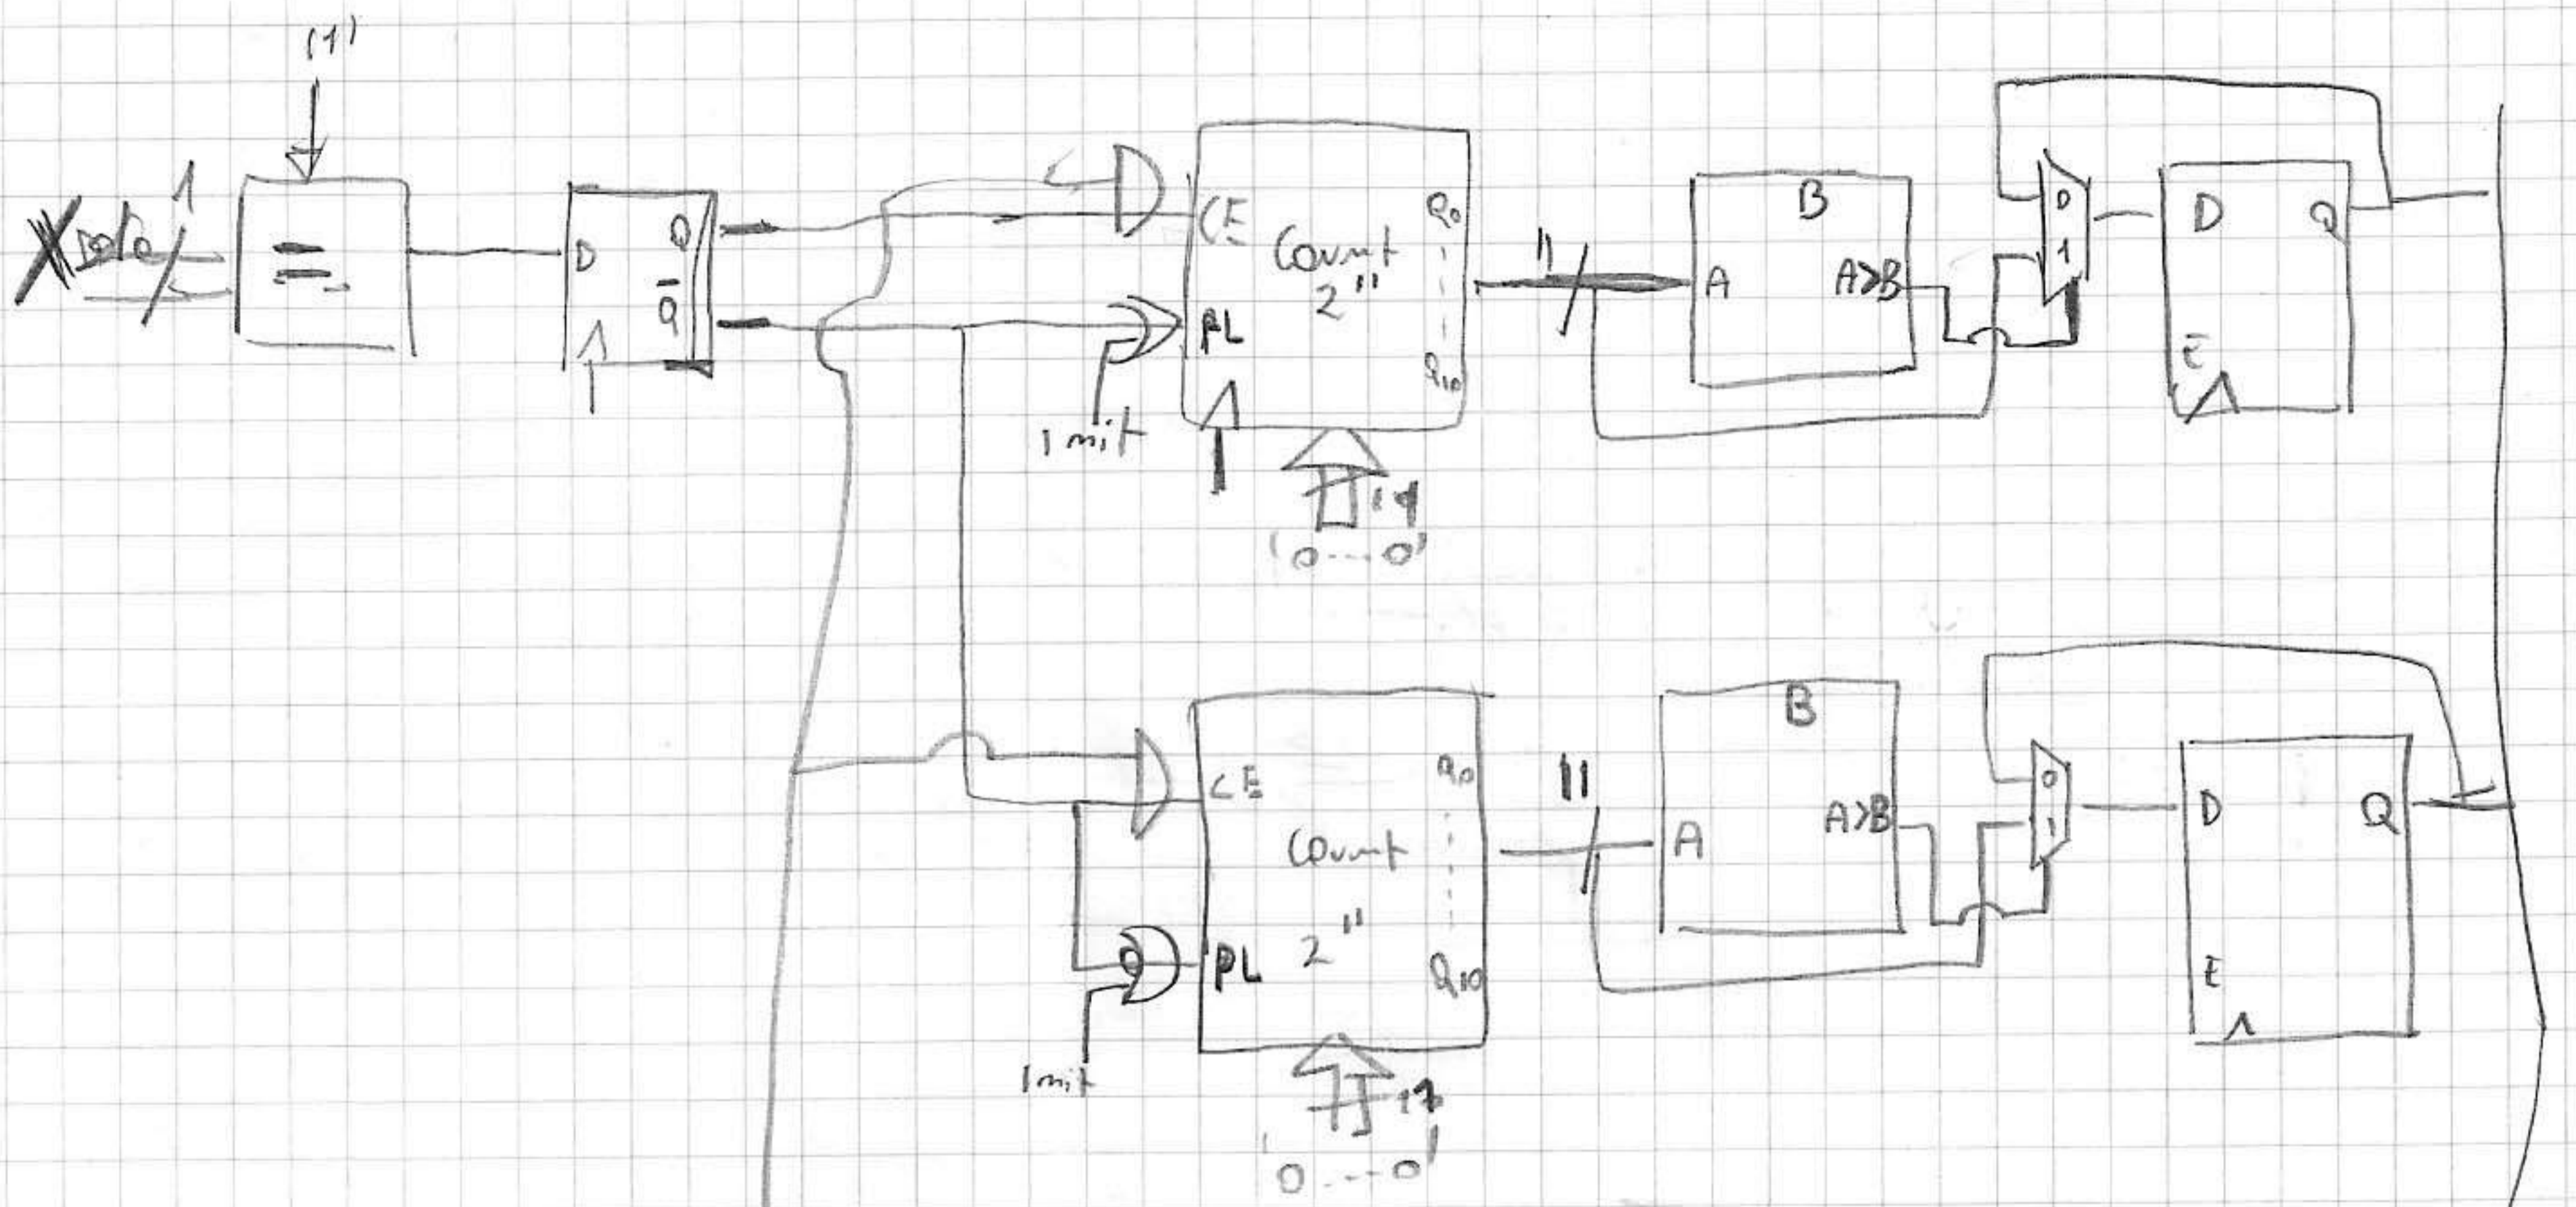 '1'
Data 1
=
D Q
Q̅
CE Q0
Count
2^11
PL Q10
Init
11
'0----0'
11
B
A A>B
0
1
D Q
E
CE Q0
Count
2^11
PL Q10
Init
11
'0----0'
11
B
A A>B
0
1
D Q
E